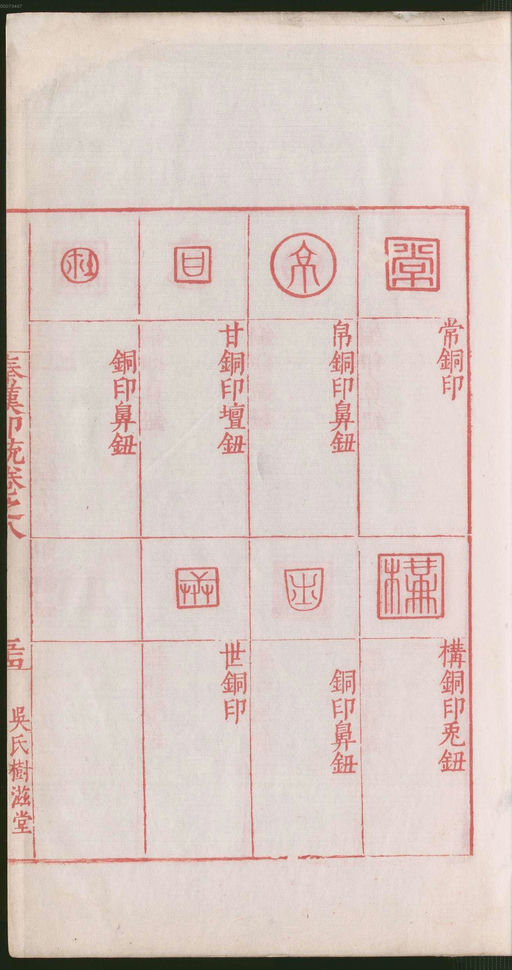 常銅印
帛銅印鼻鈕
甘銅印壇鈕
銅印鼻鈕
構銅印兎鈕
銅印鼻鈕
世銅印
秦漢印統卷之八
吳氏樹滋堂
00073447